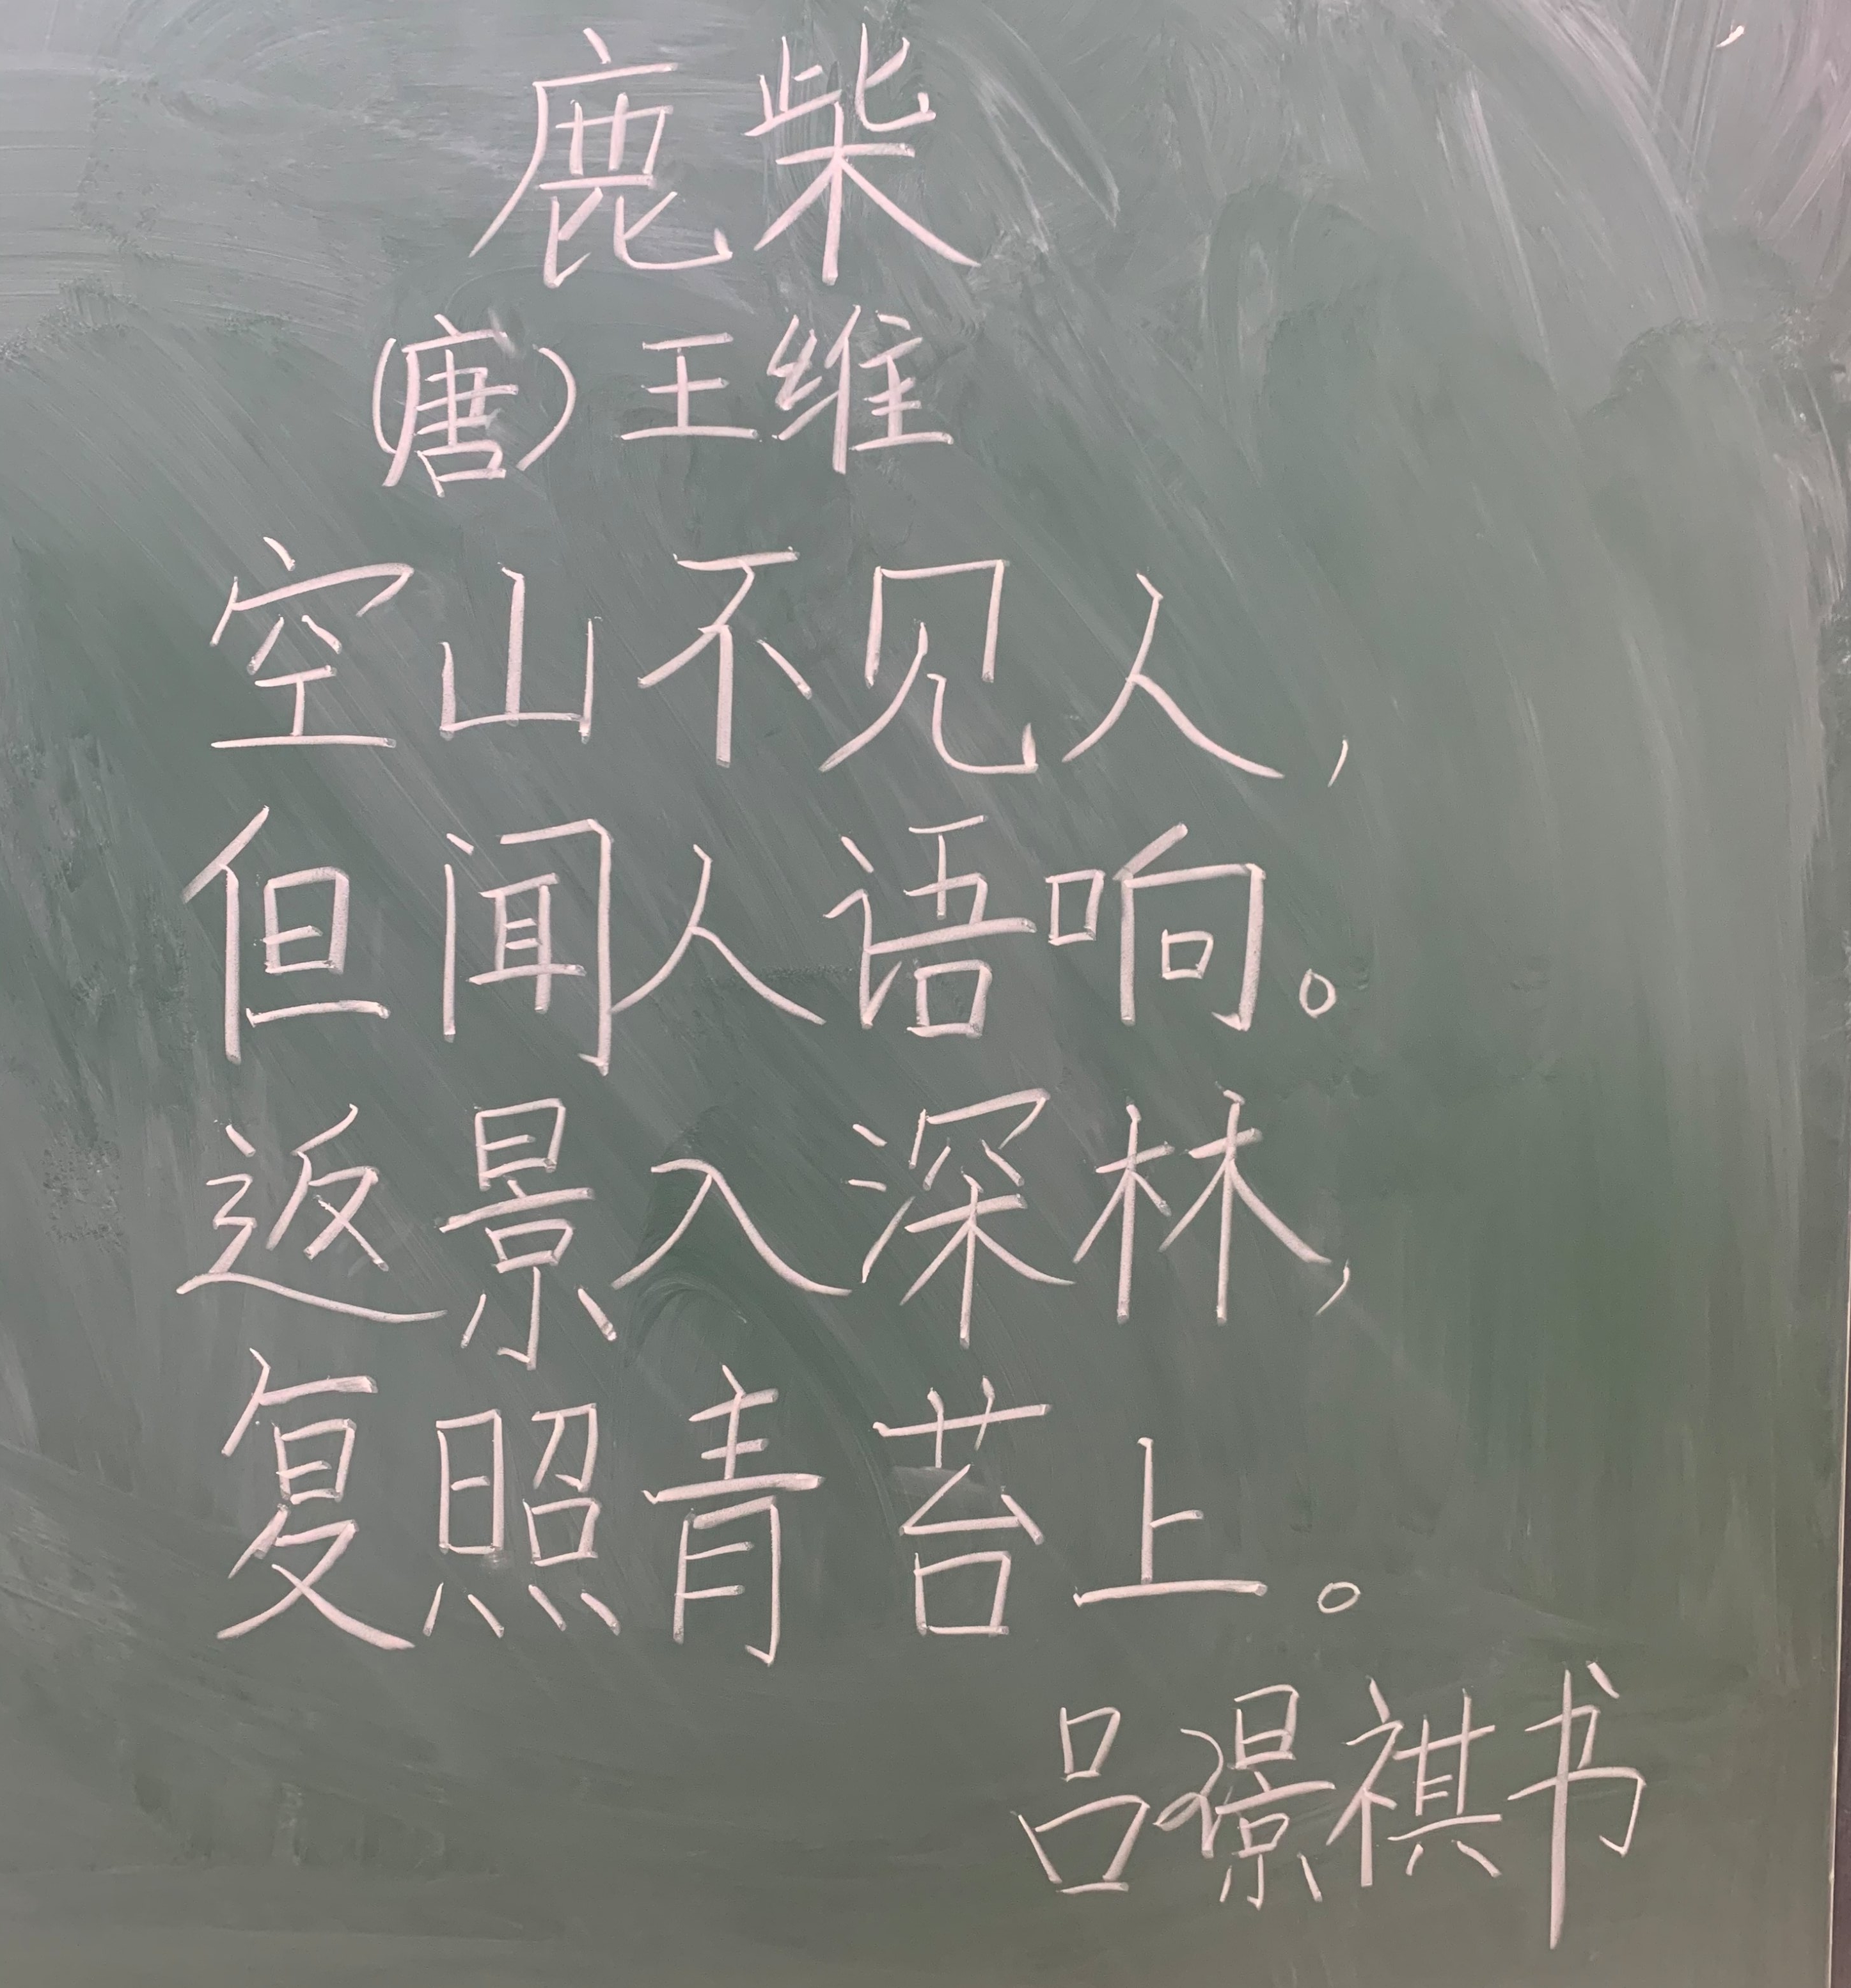 鹿柴
（唐）王维
空山不见人，
但闻人语响。
返景入深林，
复照青苔上。
吕景祺书